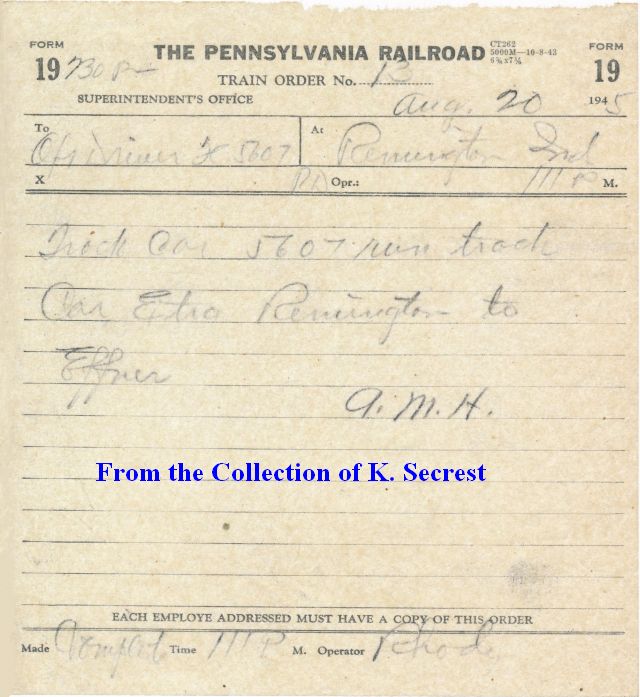 FORM 19 730 P THE PENNSYLVANIA RAILROAD CT262 5000M—10-8-43 6¾x7¼ FORM 19
TRAIN ORDER No. 13
SUPERINTENDENT'S OFFICE Aug. 20 1945
To 5607 At Remington Ind
X Opr.: 111 P M.
Track Car 5607 run track
Car Extra Remington to
Effner
A. M. H.
From the Collection of K. Secrest
EACH EMPLOYE ADDRESSED MUST HAVE A COPY OF THIS ORDER
Made Complete Time 111 P M. Operator Rhode